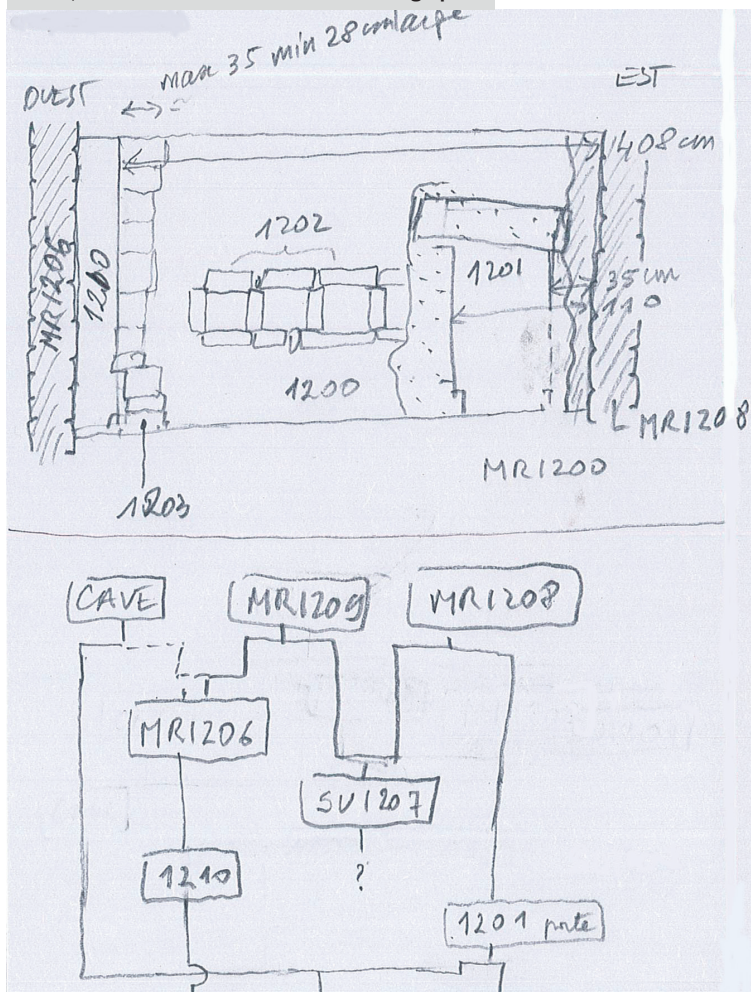 max 35 min 28 cm large
OUEST
EST
408 cm
MR1206
1202
1201
35 cm
110
1200
MR1208
MR1200
1203
CAVE
MR1209
MR1208
MR1206
SU1207
?
1210
1201 porte